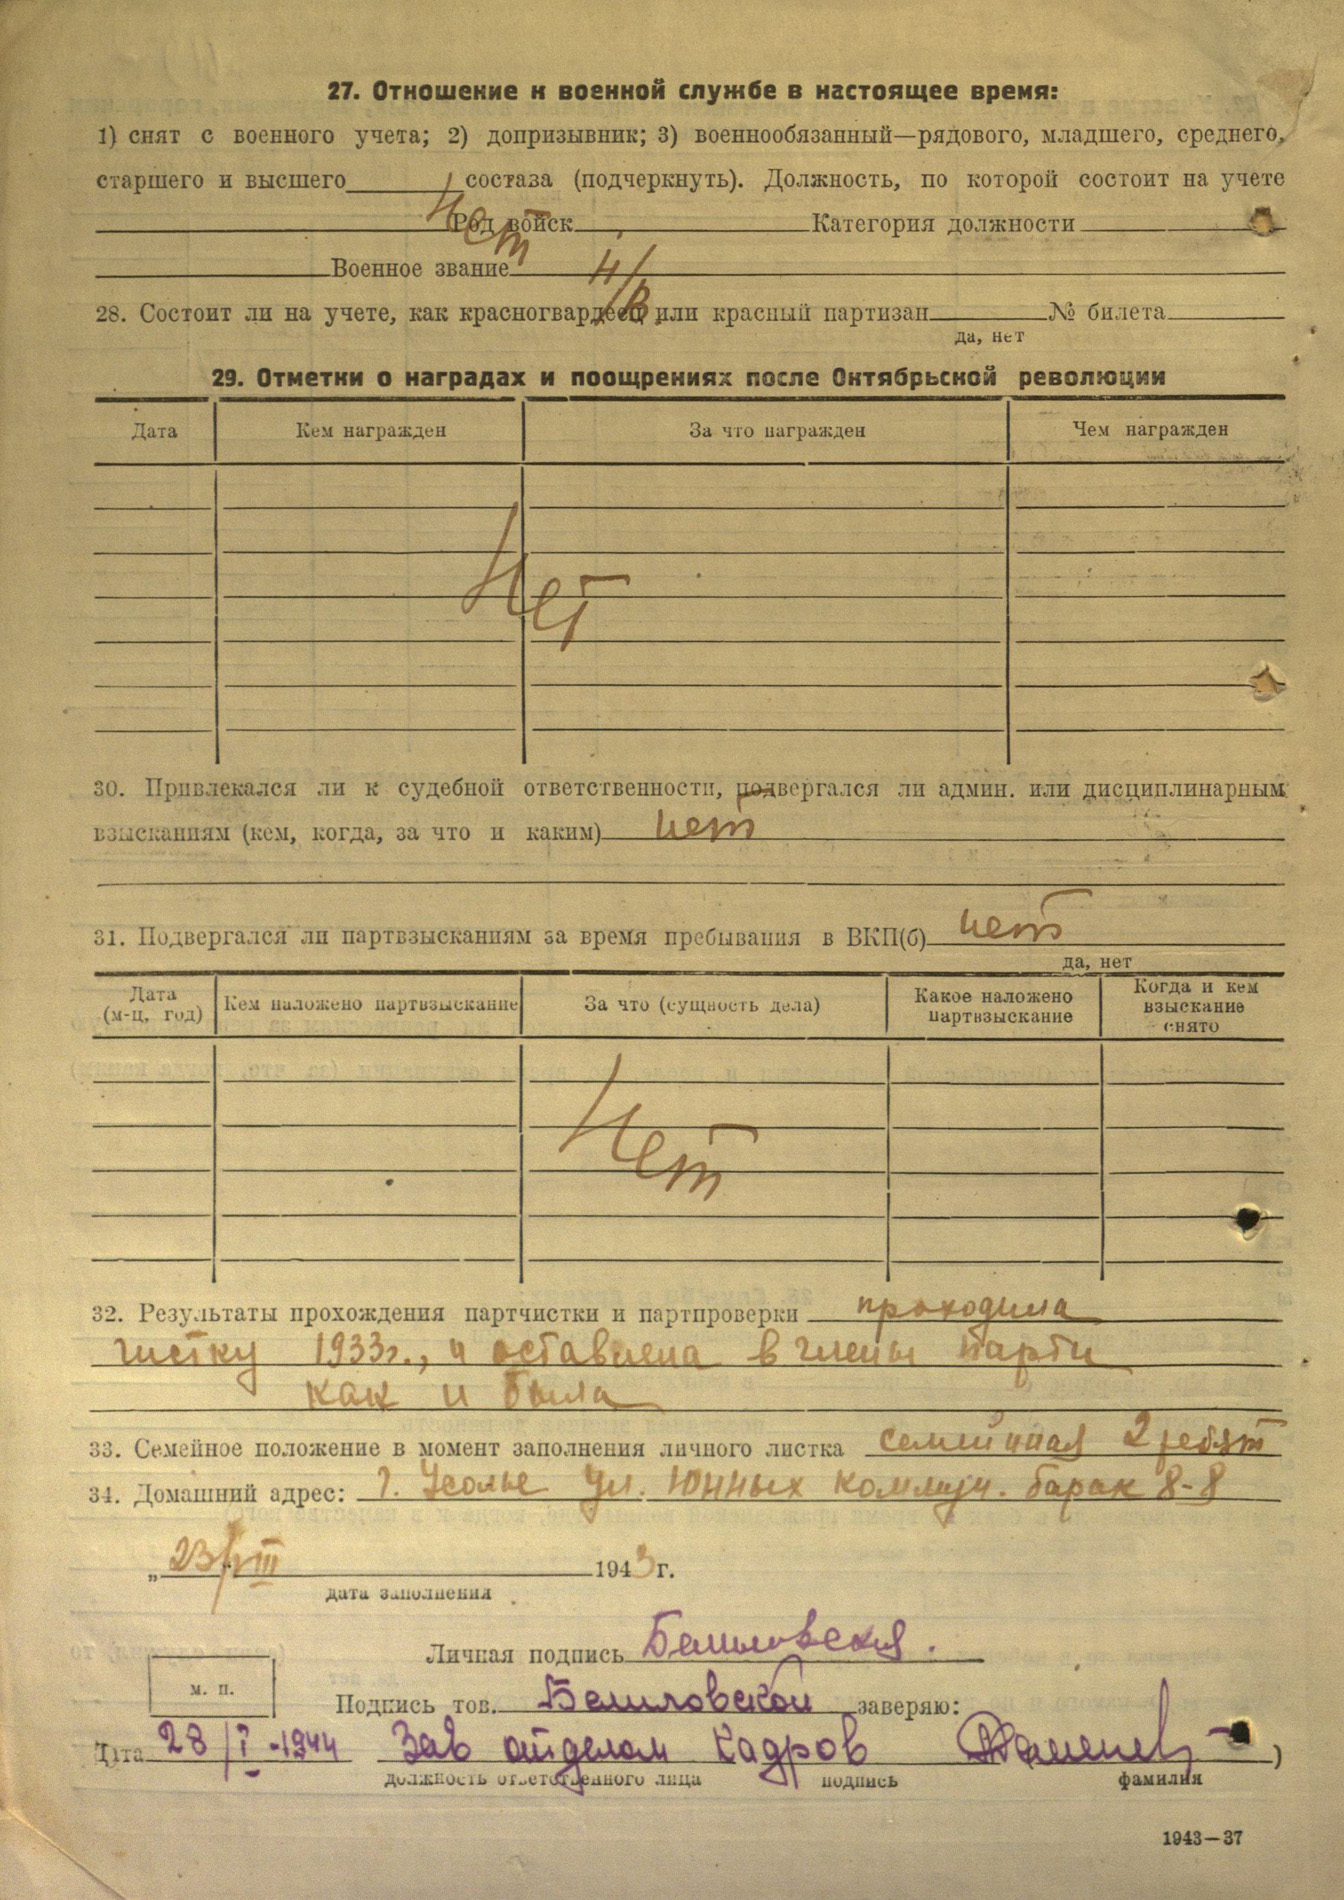 27. Отношение к военной службе в настоящее время:
1) снят с военного учета; 2) допризывник; 3) военнообязанный—рядового, младшего, среднего,
старшего и высшего состава (подчеркнуть). Должность, по которой состоит на учете
Нет Род войск Категория должности
Военное звание н/в
28. Состоит ли на учете, как красногвардеец или красный партизан № билета
да, нет
29. Отметки о наградах и поощрениях после Октябрьской революции
Дата Кем награжден За что награжден Чем награжден
Нет
30. Привлекался ли к судебной ответственности, подвергался ли админ. или дисциплинарным
взысканиям (кем, когда, за что и каким) нет
31. Подвергался ли партвзысканиям за время пребывания в ВКП(б) нет
да, нет
Дата (м-ц, год) Кем наложено партвзыскание За что (сущность дела) Какое наложено партвзыскание Когда и кем взыскание снято
Нет
32. Результаты прохождения партчистки и партпроверки проходила
чистку 1933г., и оставлена в члены парти
как и была
33. Семейное положение в момент заполнения личного листка семейная 2 ребят
34. Домашний адрес: г. Усолье ул. Юнных коммун. барак 8-8
„ 23/VIII 1943г.
дата заполнения
Личная подпись
м. п.
Подпись тов. заверяю:
Дата 28/I-1944 Зав отделом Кадров )
должность ответственного лица подпись фамилия
1943—37